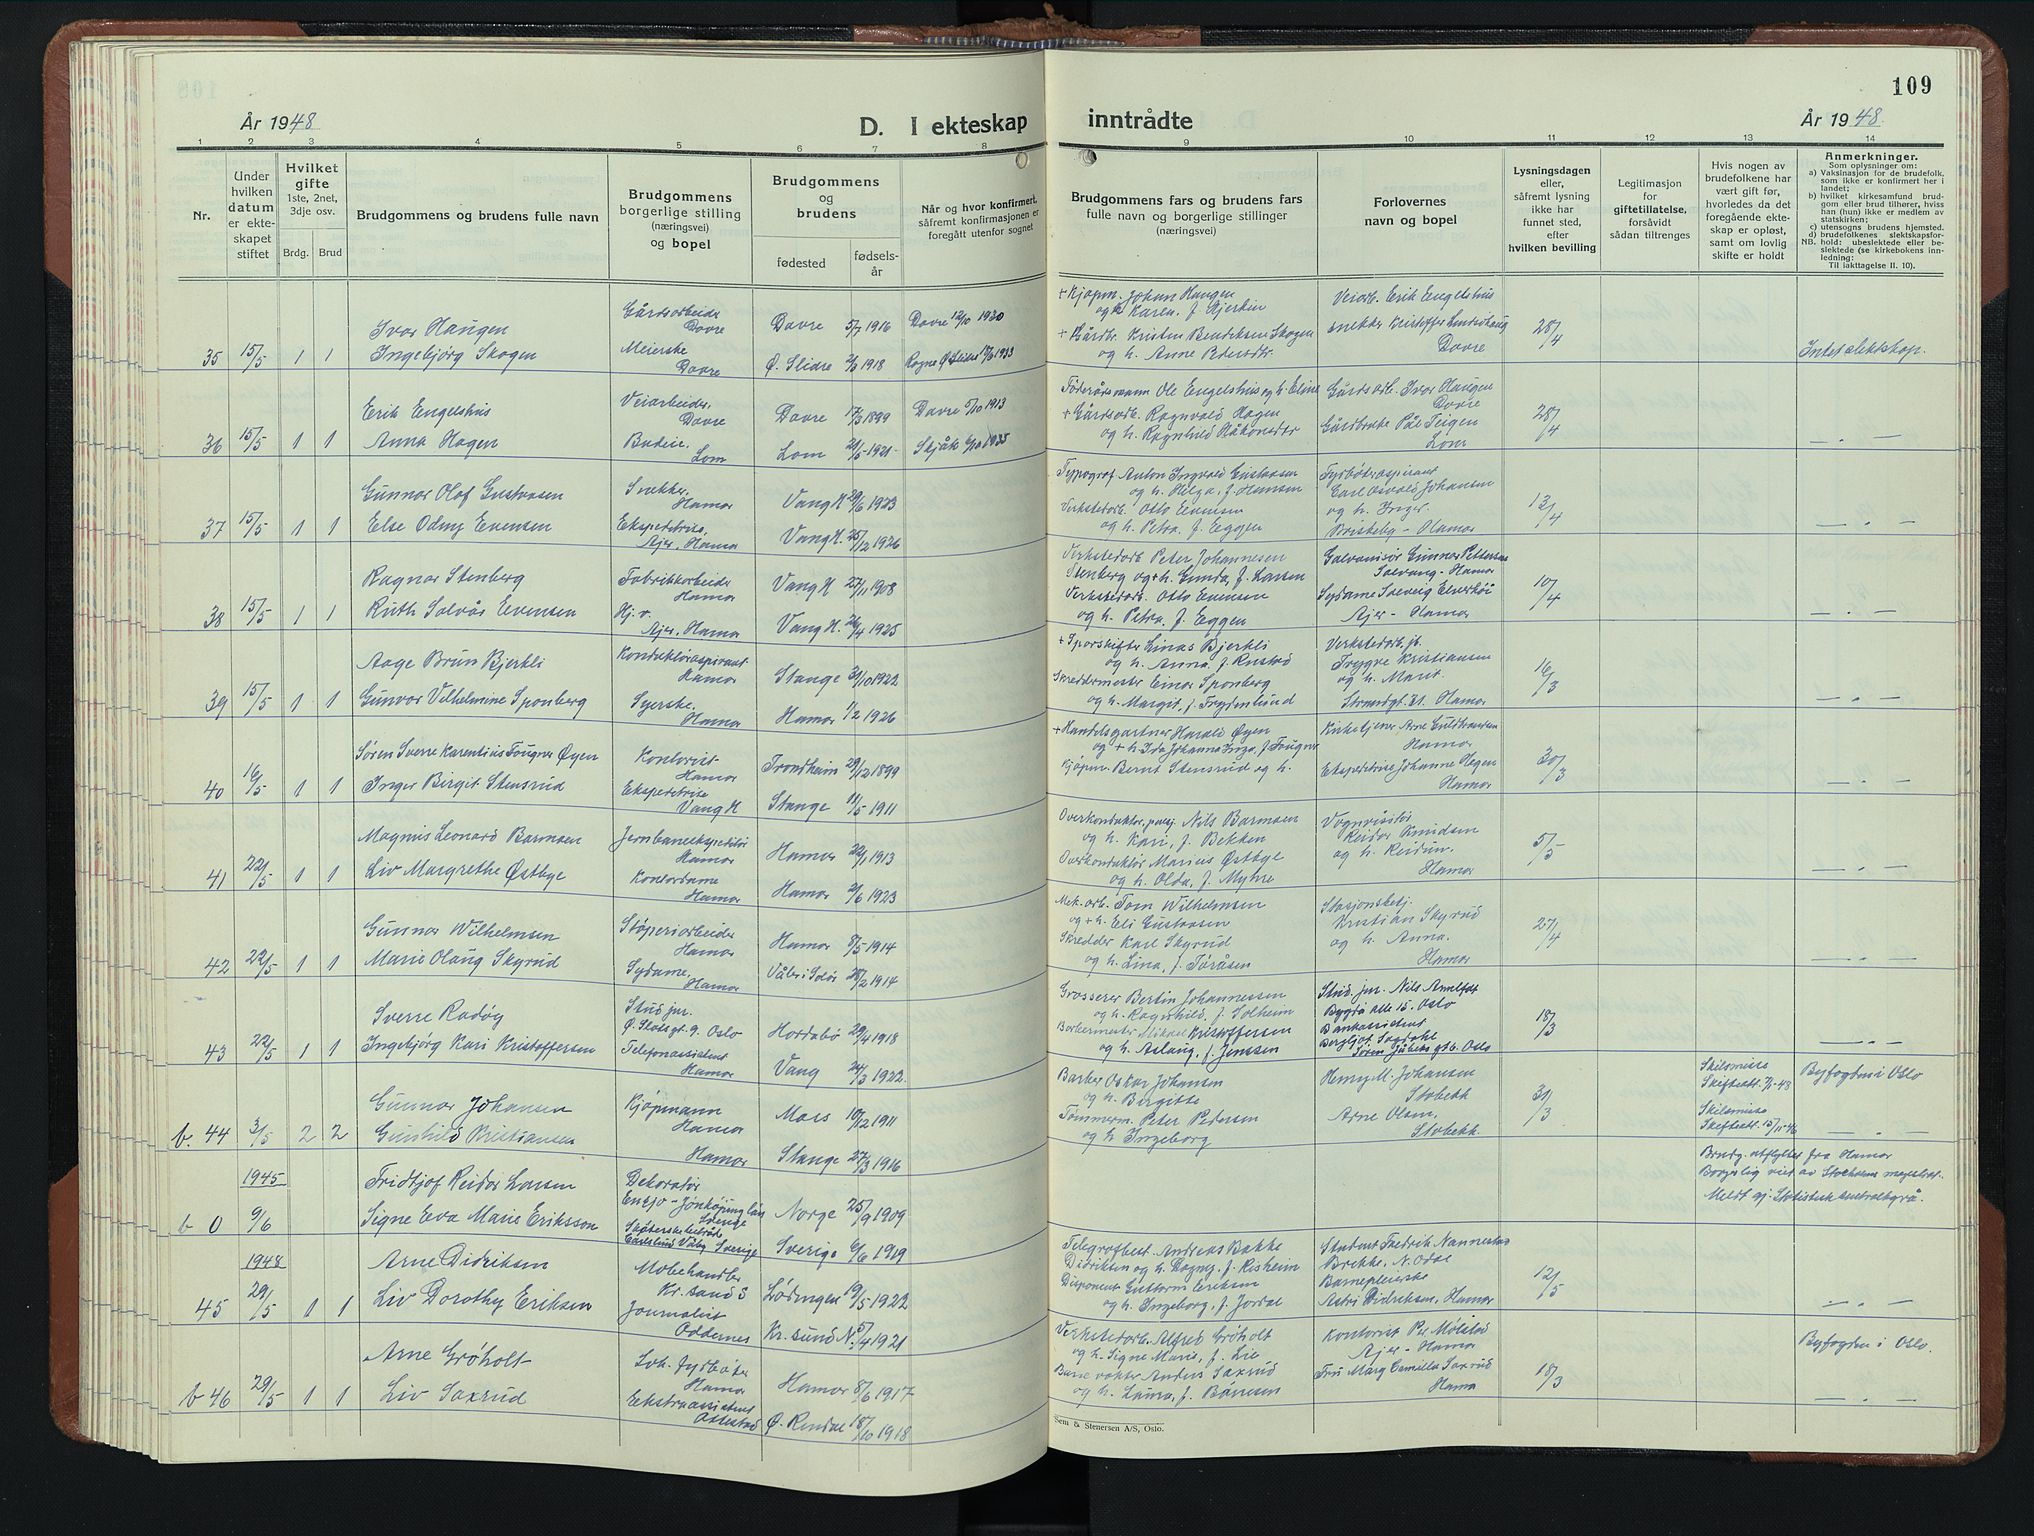 109
År 1948
D. I ekteskap
inntrådte
År 1948.
1 2 3 4 5 6 7 8 9 10 11 12 13 14
Nr.
Under
hvilken
datum
er ekte-
skapet
stiftet
Hvilket
gifte
1ste, 2net,
3dje osv.
Brdg. Brud
Brudgommens og brudens fulle navn
Brudgommens
borgerlige stilling
(næringsvei)
og bopel
Brudgommens
og
brudens
fødested
fødsels-
år
Når og hvor konfirmert,
såfremt konfirmasjonen er
foregått utenfor sognet
Brudgommens fars og brudens fars
fulle navn og borgerlige stillinger
(næringsvei)
Forlovernes
navn og bopel
Lysningsdagen
eller,
såfremt lysning
ikke har
funnet sted,
efter
hvilken bevilling
Legitimasjon
for
giftetillatelse,
forsåvidt
sådan tiltrenges
Hvis nogen av
brudefolkene har
vært gift før,
hvorledes da det
foregående ekte-
skap er opløst,
samt om lovlig
skifte er holdt
Anmerkninger.
Som oplysninger om:
a) Vaksinasjon for de brudefolk,
som ikke er konfirmert her i
landet;
b) hvilket kirkesamfund brud-
gom eller brud tilhører, hviss
han (hun) ikke er medlem av
statskirken;
c) utensogns brudens hjemsted.
d) brudefolkenes slektskapsfor-
NB. hold: ubeslektede eller be-
slektede (se kirkebokens inn-
ledning:
Til iakttagelse II. 10).
Ivar Haugen Gårdsarbeider Dovre Dovre 5/7 1916 Dovre 12/10 1930
35 15/5 1 1 Ingebjørg Skogen Meierske Dovre Ø. Slidre 1918 Rogne Ø Slidre 1933
+ Kjøpm. Johan Haugen
og Karen, f. Hjerkin
+ Gårdbr. Kristen Bendiksen Skogen
og h. Anne Pedersdtr.
Veiarb. Erik Engelshus
snekker Kristoffer
Dovre
28/4
Intet slektskap.
Erik Engelshus Veiarbeider, Dovre Dovre 17/3 1899 Dovre 5/10 1913
36 15/5 1 1 Anna Hagen Budeie, Lom Lom 1921 Skjåk 1935
Føderådsmann Ole Engelshus og h. Eline
+ Gårdsarb. Ragnvald Hagen
og h. Ragnhild Håkonsdtr
Gårdsarb. Ivar Haugen
Dovre
Gårdbruker Pål Teigen
Lom
28/4
— „ —
Gunnar Olaf Gustavsen Snekker, Hamar Vang H 29/6 1923
37 15/5 1 1 Else Odny Evensen Ekspeditrise, Ajer, Hamar Vang H. 25/12 1926
Typograf Anton Ingvald Gustavsen
og h. Helga, f. Hansen
Verkstedarb. Otto Evensen
og h. Petra, f. Eggen
Fyrbøteraspirant
Carl Osvald Johansen
og h. Inger
Briskeby - Hamar
13/4
— „ —
Ragnar Stenberg Fabrikkarbeider Hamar Vang H 27/11 1908
38 15/5 1 1 Ruth Solvår Evensen Hj. v. Ajer, Hamar Vang H. 26/4 1925
Verkstedarb Peter Johannesen
Stenberg og + h. Gunda, f. Larsen
Verkstedarb. Otto Evensen
og h. Petra, f. Eggen
Galvanisør Gunnar Pettersen
Solvang - Hamar
Sydame Solveig Elverhøi
Ajer - Hamar
10/4
— „ —
Aage Brun Bjerkli Konduktøraspirant Hamar Stange 31/10 1922
39 15/5 1 1 Gunvor Vilhelmine Sponberg Syerske, Hamar Hamar 1/2 1926
+ Sporskifter Linas Bjerkli
og h. Anna, f. Rustad
Skreddermester Einar Sponberg
og h. Margit, f. Frydenlund
Verkstedarb. jb.
Trygve Kristiansen
og h. Marit.
Strandgt. 21. Hamar
16/3
— „ —
Søren Sverre Karentius Fougner Øyen Kontorist Hamar Trondheim 29/12 1899
40 16/5 1 1 Inger Birgit Stensrud Ekspeditrise Vang H Stange 11/5 1911
+ Handelsgartner Harald Øyen
og + h. Ida Johanna Inga, f. Fougner
Kjøpm. Bernt Stensrud og h.
Kirketjener Arne Guldbrandsen
Hamar
Ekspeditrise Johanne Hegen
Hamar
30/3
— „ —
Magnus Leonard Barmoen Jernbaneekspeditør Hamar Hamar 22/1 1913
41 22/5 1 1 Liv Margrethe Østbye Kontordame Hamar Hamar 2/6 1923
Overkonduktør, pensj. Nils Barmoen
og h. Kari, f. Bekken
Overkonduktør Marius Østbye
og h. Olda, f. Myhre
Vognvisitør
Reidar Knudsen
og h. Reidun.
Hamar
5/5
— „ —
Gunnar Wilhelmsen Støperiarbeider Hamar Hamar 8/5 1914
42 22/5 1 1 Marie Olaug Skyrud Sydame, Hamar Våler i Solør 28/2 1914
Mek. arb. Tom Wilhelmsen
og + h. Eli Gustavsen
Skredder Karl Skyrud
og h. Lina, f. Føråsen
Stasjonsbetj.
Kristian Skyrud
og h. Anna.
Hamar
27/4
Sverre Radøy Stud. jur. Ø. Slotsgt. 9. Oslo Hordabø 29/4 1918
43 22/5 1 1 Ingebjørg Kari Kristoffersen Telefonassistent Hamar Vang 24/3 1922
Grosserer Bertin Johannessen
og h. Ragnhild, f. Solheim
Barbermester Mikael Kristoffersen
og h. Aslaug, f. Jenssen
Stud. jur. Nils
Bygdø alle 15. Oslo
Bankassistent
Bergljot
Søren Jåbæks gt 6. Oslo
18/3
— „ —
Gunnar Johansen Kjøpmann Hamar Moss 10/12 1911
b. 44 3/5 2 2 Gunhild Kristiansen Hamar Stange 27/3 1916
Barber Oskar Johansen
og h. Birgitte
Tømmerm. Peter Pedersen
og h. Ingeborg
Henry M. Johansen
Stobekk
Arne Olsen,
Stobekk.
31/3
Skilsmisse
Skifteatt. 7/1-43
Skilsmisse
Skifteatt. 13/11-46
Byfogden i Oslo
— „ —
1945 Fridtjof Reidar Larsen Dekoratør Ensjø - Jønkøping län Sverige Norge 25/9 1909
b 0 9/6 Signe Eva Marie Eriksson Sverige Sverige 6/6 1919
Brudg. utflyttet fra Hamar
Borgerlig viet av Stockholms magistrat.
Meldt gj. Statistisk sentralbyrå.
1948 Arne Didriksen Møbelhandler Kr. sand S Lødingen 19/5 1922
45 29/5 1 1 Liv Dorothy Eriksen Journalist Oddernes Kr. sund N. 5/4 1921
Telegrafbest. Andreas Bakke
Didriksen og h. Dagny, f. Risheim
Disponent Guttorm Eriksen
og h. Ingeborg, f. Jordal
Student Fredrik Nannestad
Brekke, N. Odal
Barnepleierske
Astri Didriksen, Hamar
12/5
— „ —
Arne Grøholt Lok. fyrbøter Hamar Hamar 8/6 1917
b 46 29/5 1 1 Liv Saxrud Ekstraassistent Ottestad Ø. Rendal 18/10 1918
Verkstedarb. Alfred Grøholt
og h. Signe Marie, f. Lie
Banevokter Anders Saxrud
og h. Laura, f. Børresen
Kontorist Per Mølstad
Ajer - Hamar
Fru Marg Camilla Saxrud
Hamar
18/3
Byfogden i Oslo.
— „ —
Sem & Stenersen A/S, Oslo.